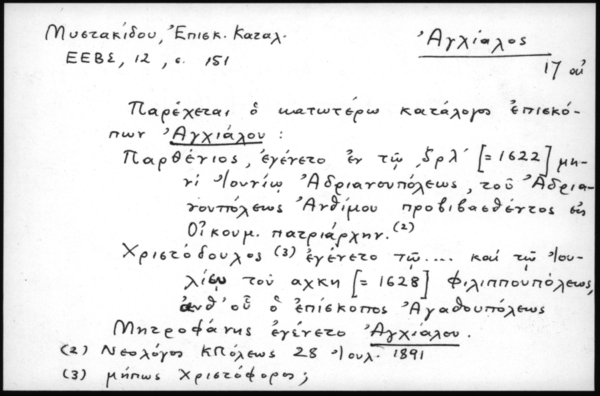 Μυστακίδου, Ἐπισκ. Καταλ.
ΕΕΒΣ, 12, σ. 151
Ἀγχίαλος
17 αἰ
Παρέχεται ὁ κατωτέρω κατάλογος ἐπισκό-
πων Ἀγχιάλου :
Παρθένιος, ἐγένετο ἐν τῷ ͵ζρλ´ [= 1622] μη-
νὶ Ἰουνίῳ Ἀδριανουπόλεως, τοῦ Ἀδρια-
νουπόλεως Ἀνθίμου προβιβασθέντος εἰς
Οἰκουμ. πατριάρχην. (2)
Χριστόδουλος (3) ἐγένετο τῷ .... καὶ τῷ Ἰου-
λίῳ τοῦ αχκη [= 1628] Φιλιππουπόλεως,
ἀνθ' οὗ ὁ ἐπίσκοπος Ἀγαθουπόλεως
Μητροφάνης ἐγένετο Ἀγχιάλου.
(2) Νεολόγος ΚΠόλεως 28 Ἰουλ. 1891
(3) μήπως Χριστόφορος;